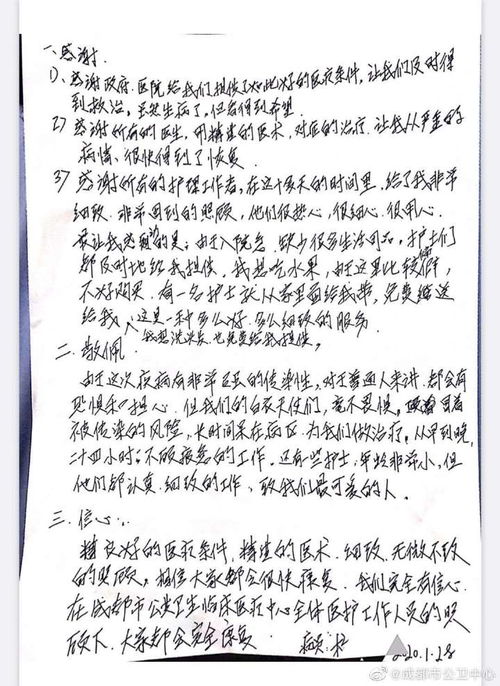 一、感谢.
1)、感谢政府、医院给我们提供了如此好的医疗条件,让我们及时得
到救治,虽然生病了,但看得到希望.
2) 感谢所有的医生,用精湛的医术,对症的治疗,让我从严重的
病情、很快得到了恢复.
3) 感谢所有的护理工作者,在这十多天的时间里,给了我非常
细致、非常周到的照顾,他们很热心、很细心、很用心.
最让我感动的是:由于入院急,缺少很多生活用品,护士们
都及时地给我提供,我想吃水果,由于这里比较偏僻,
不好购买,有一名护士就从家里面给我带,免费赠送
给我,这是一种多么好、多么细致的服务.
我想洗头,也免费给我提供。
二、敬佩.
由于这次疫病有非常强的传染性,对于普通人来讲,都会有
恐惧和担心,但我们的白衣天使们,毫不畏惧,冒着
被传染的风险,长时间呆在病区,为我们做治疗,从早到晚,
二十四小时,不顾疲惫的工作,还有些护士,年龄非常小,但
他们都认真、细致的工作,致我们最可爱的人.
三、信心:
精良好的医疗条件,精湛的医术,细致、无微不致
的照顾,相信大家都会很快康复,我们完全有信心,
在成都市公共卫生临床医疗中心全体医护工作人员的照
顾下,大家都会完全康复.
2020.1.28
@成都市公卫中心